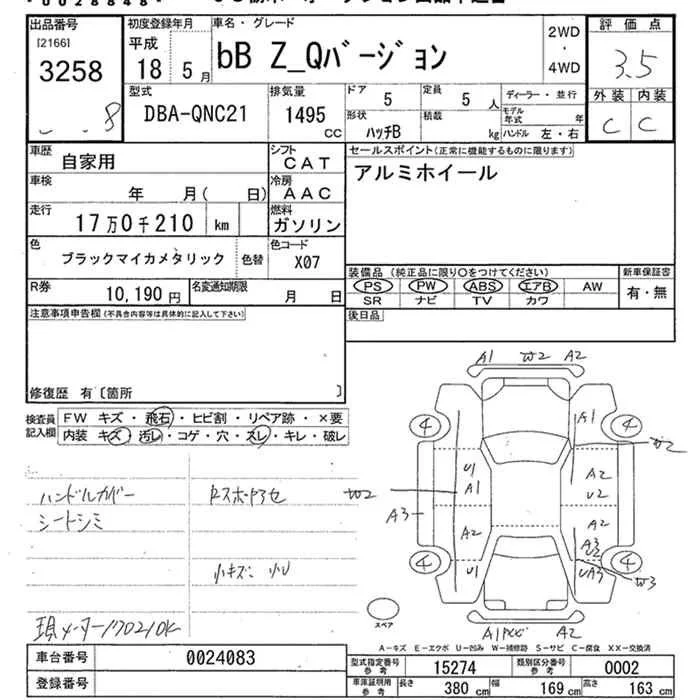 出品番号
[2166]
3258
8
初度登録年月
平成
18 5月
車名・グレード
bB Z_Qバージョン
2WD
・
4WD
評価点
3.5
外装 内装
C C
型式
DBA-QNC21
排気量
1495
CC
ドア
5
定員
5 人
形状
ハッチB
積載
kg
ディーラー・並行
モデル年式 年
ハンドル 左・右
車歴
自家用
シフト
CAT
車検
年 月( 日)
冷房
AAC
走行
17万0千210 km
燃料
ガソリン
色
ブラックマイカメタリック
色替
色コード
X07
R券
10,190円
名変通知期限
月 日
セールスポイント(正常に機能するものに限ります)
アルミホイール
装備品 (純正品に限り○をつけてください)
PS PW ABS エアB AW
SR ナビ TV カワ
新車保証書
有・無
注意事項申告欄(不具合内容等は具体的に記入して下さい)
後日品
修復歴 有〔箇所 〕
検査員記入欄
FW キズ・飛石・ヒビ割・リペア跡・×要
内装 キズ・汚レ・コゲ・穴・スレ・キレ・破レ
ハンドルカバー
シートシミ
小キズ 小U
現メーター170210K
A1 W2 A2
4 A1 4
W2
U1 A2
W2 A1 U2
A3
A2 A2
A3
U1 UA3
4 4
W3
スペア
A2
A-キズ E-エクボ U-凹み W-補修跡 S-サビ C-腐食 XX-交換済
車台番号
0024083
登録番号
型式指定番号 参考
15274
類別区分番号 参考
0002
車庫証明用 参考
長さ 380 cm
幅 169 cm
高さ 163 cm